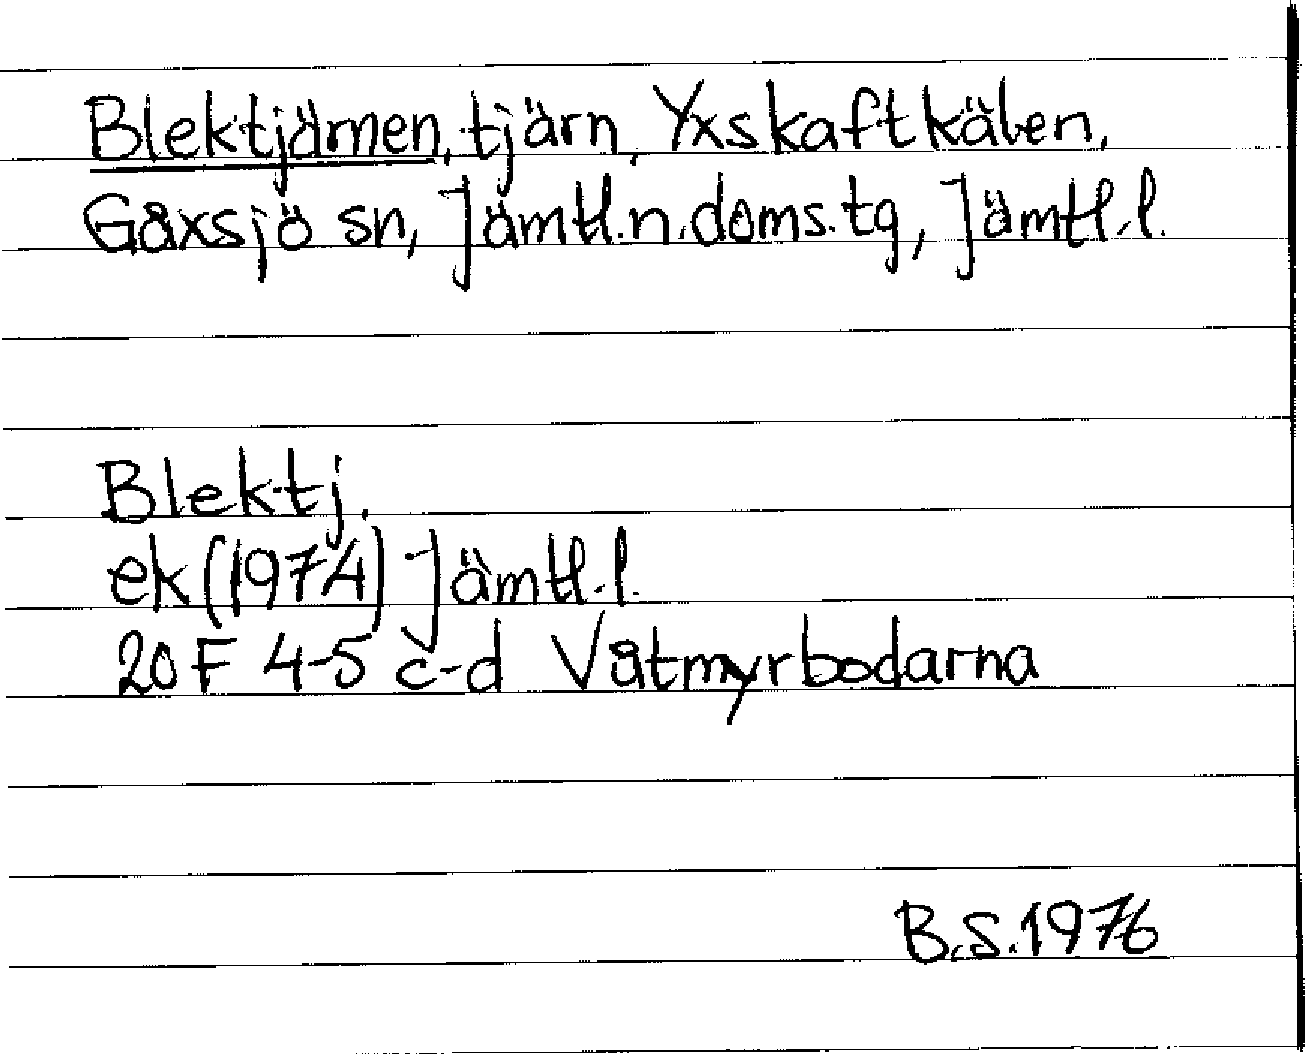 Blektjärnen, tjärn, Yxskaftkälen,
Gåxsjö sn, Jämtl.n.doms.tg, Jämtl.l.
Blektj.
ek (1974) Jämtl.l.
20F 4-5 c-d Våtmyrbodarna
B.S.1976